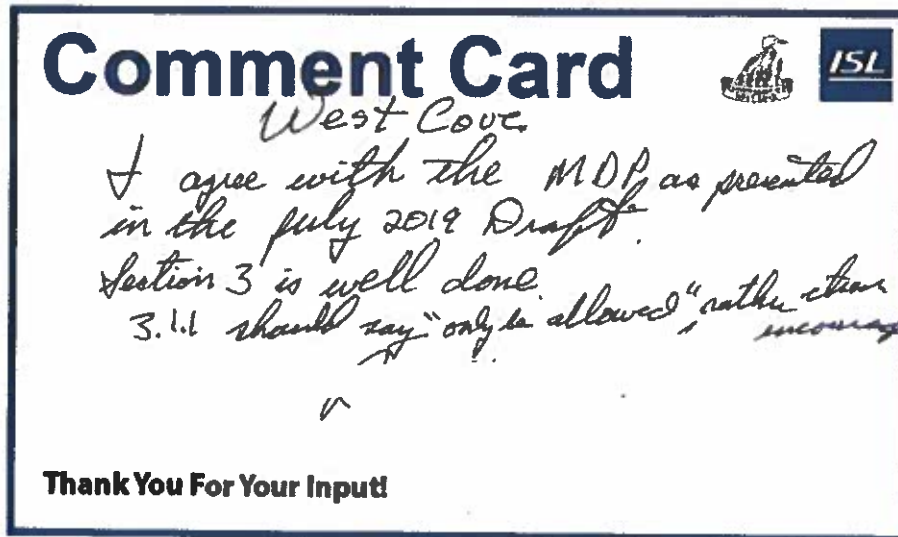 Comment Card
ISL
West Cove
I agree with the MDP as presented
in the July 2019 Draft.
Section 3 is well done
3.1.1 should say "only be allowed", rather than
encourag
Thank You For Your Input!